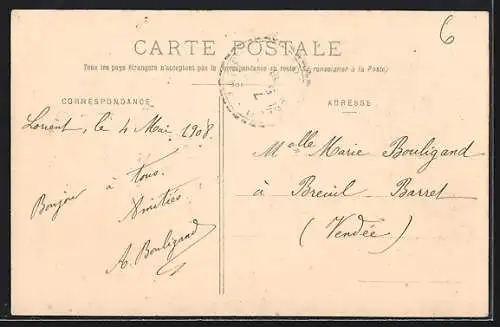 6
CARTE POSTALE
Tous les pays étrangers n'acceptent pas la correspondance au recto (Se renseigner à la Poste)
CORRESPONDANCE
Lorient, le 4 Mai 1908.
Bonjour à tous.
Amitiés
A. Bouligand
ADRESSE
Melle Marie Bouligand
à Breuil-Barret
(Vendée)